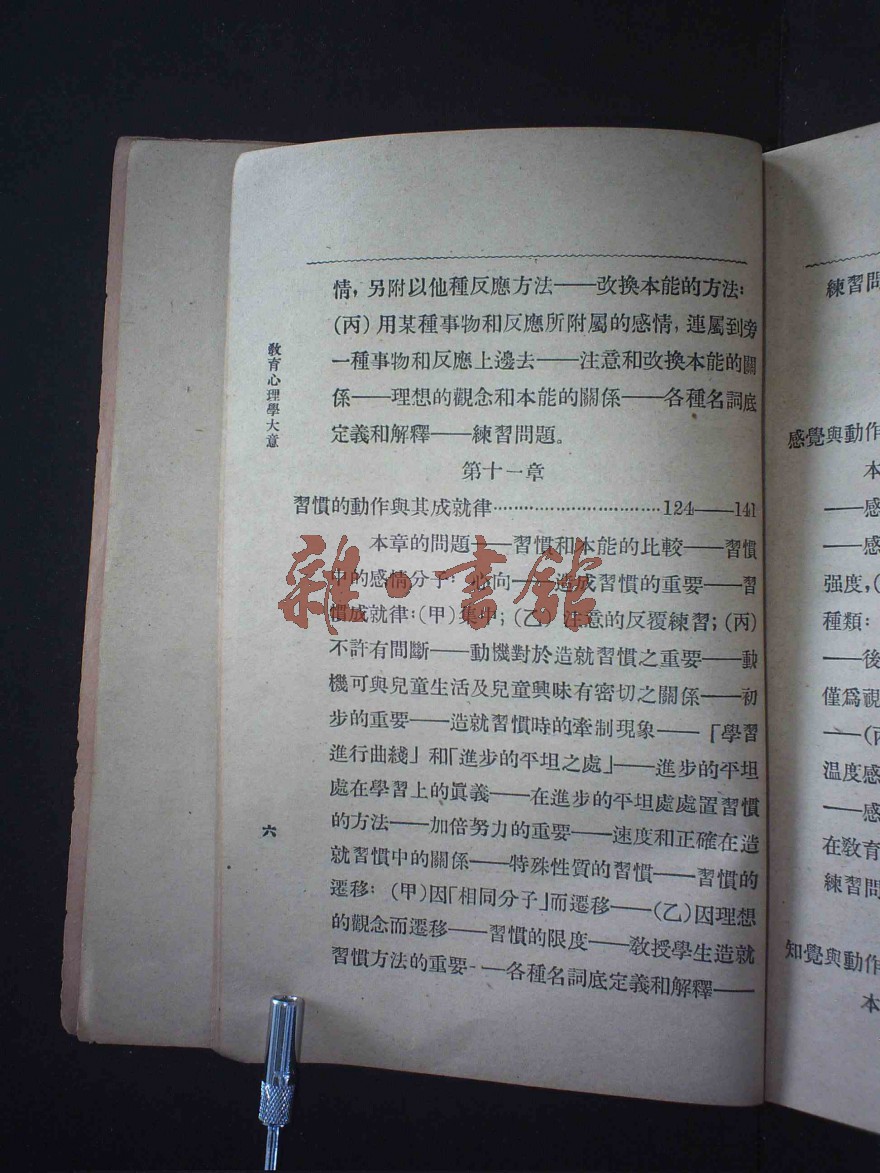 情，另附以他種反應方法——改換本能的方法：
(丙)用某種事物和反應所附屬的感情，連屬到旁
一種事物和反應上邊去——注意和改換本能的關
係——理想的觀念和本能的關係——各種名詞底
定義和解釋——練習問題。
第十一章
習慣的動作與其成就律……………………………124——141
本章的問題——習慣和本能的比較——習慣
中的感情分子：心向——造成習慣的重要——習
慣成就律：(甲)集中；(乙)注意的反覆練習；(丙)
不許有間斷——動機對於造就習慣之重要——動
機可與兒童生活及兒童興味有密切之關係——初
步的重要——造就習慣時的牽制現象——「學習
進行曲綫」和「進步的平坦之處」——進步的平坦
處在學習上的眞義——在進步的平坦處處置習慣
的方法——加倍努力的重要——速度和正確在造
就習慣中的關係——特殊性質的習慣——習慣的
遷移：(甲)因「相同分子」而遷移——(乙)因理想
的觀念而遷移——習慣的限度——敎授學生造就
習慣方法的重要-—各種名詞底定義和解釋——
敎育心理學大意
六
雜·書館
練習問
感覺與動作
本
——感
——感
强度，(
種類：
——後
僅爲視
——(丙
温度感
——感
在敎育
練習問
知覺與動作
本